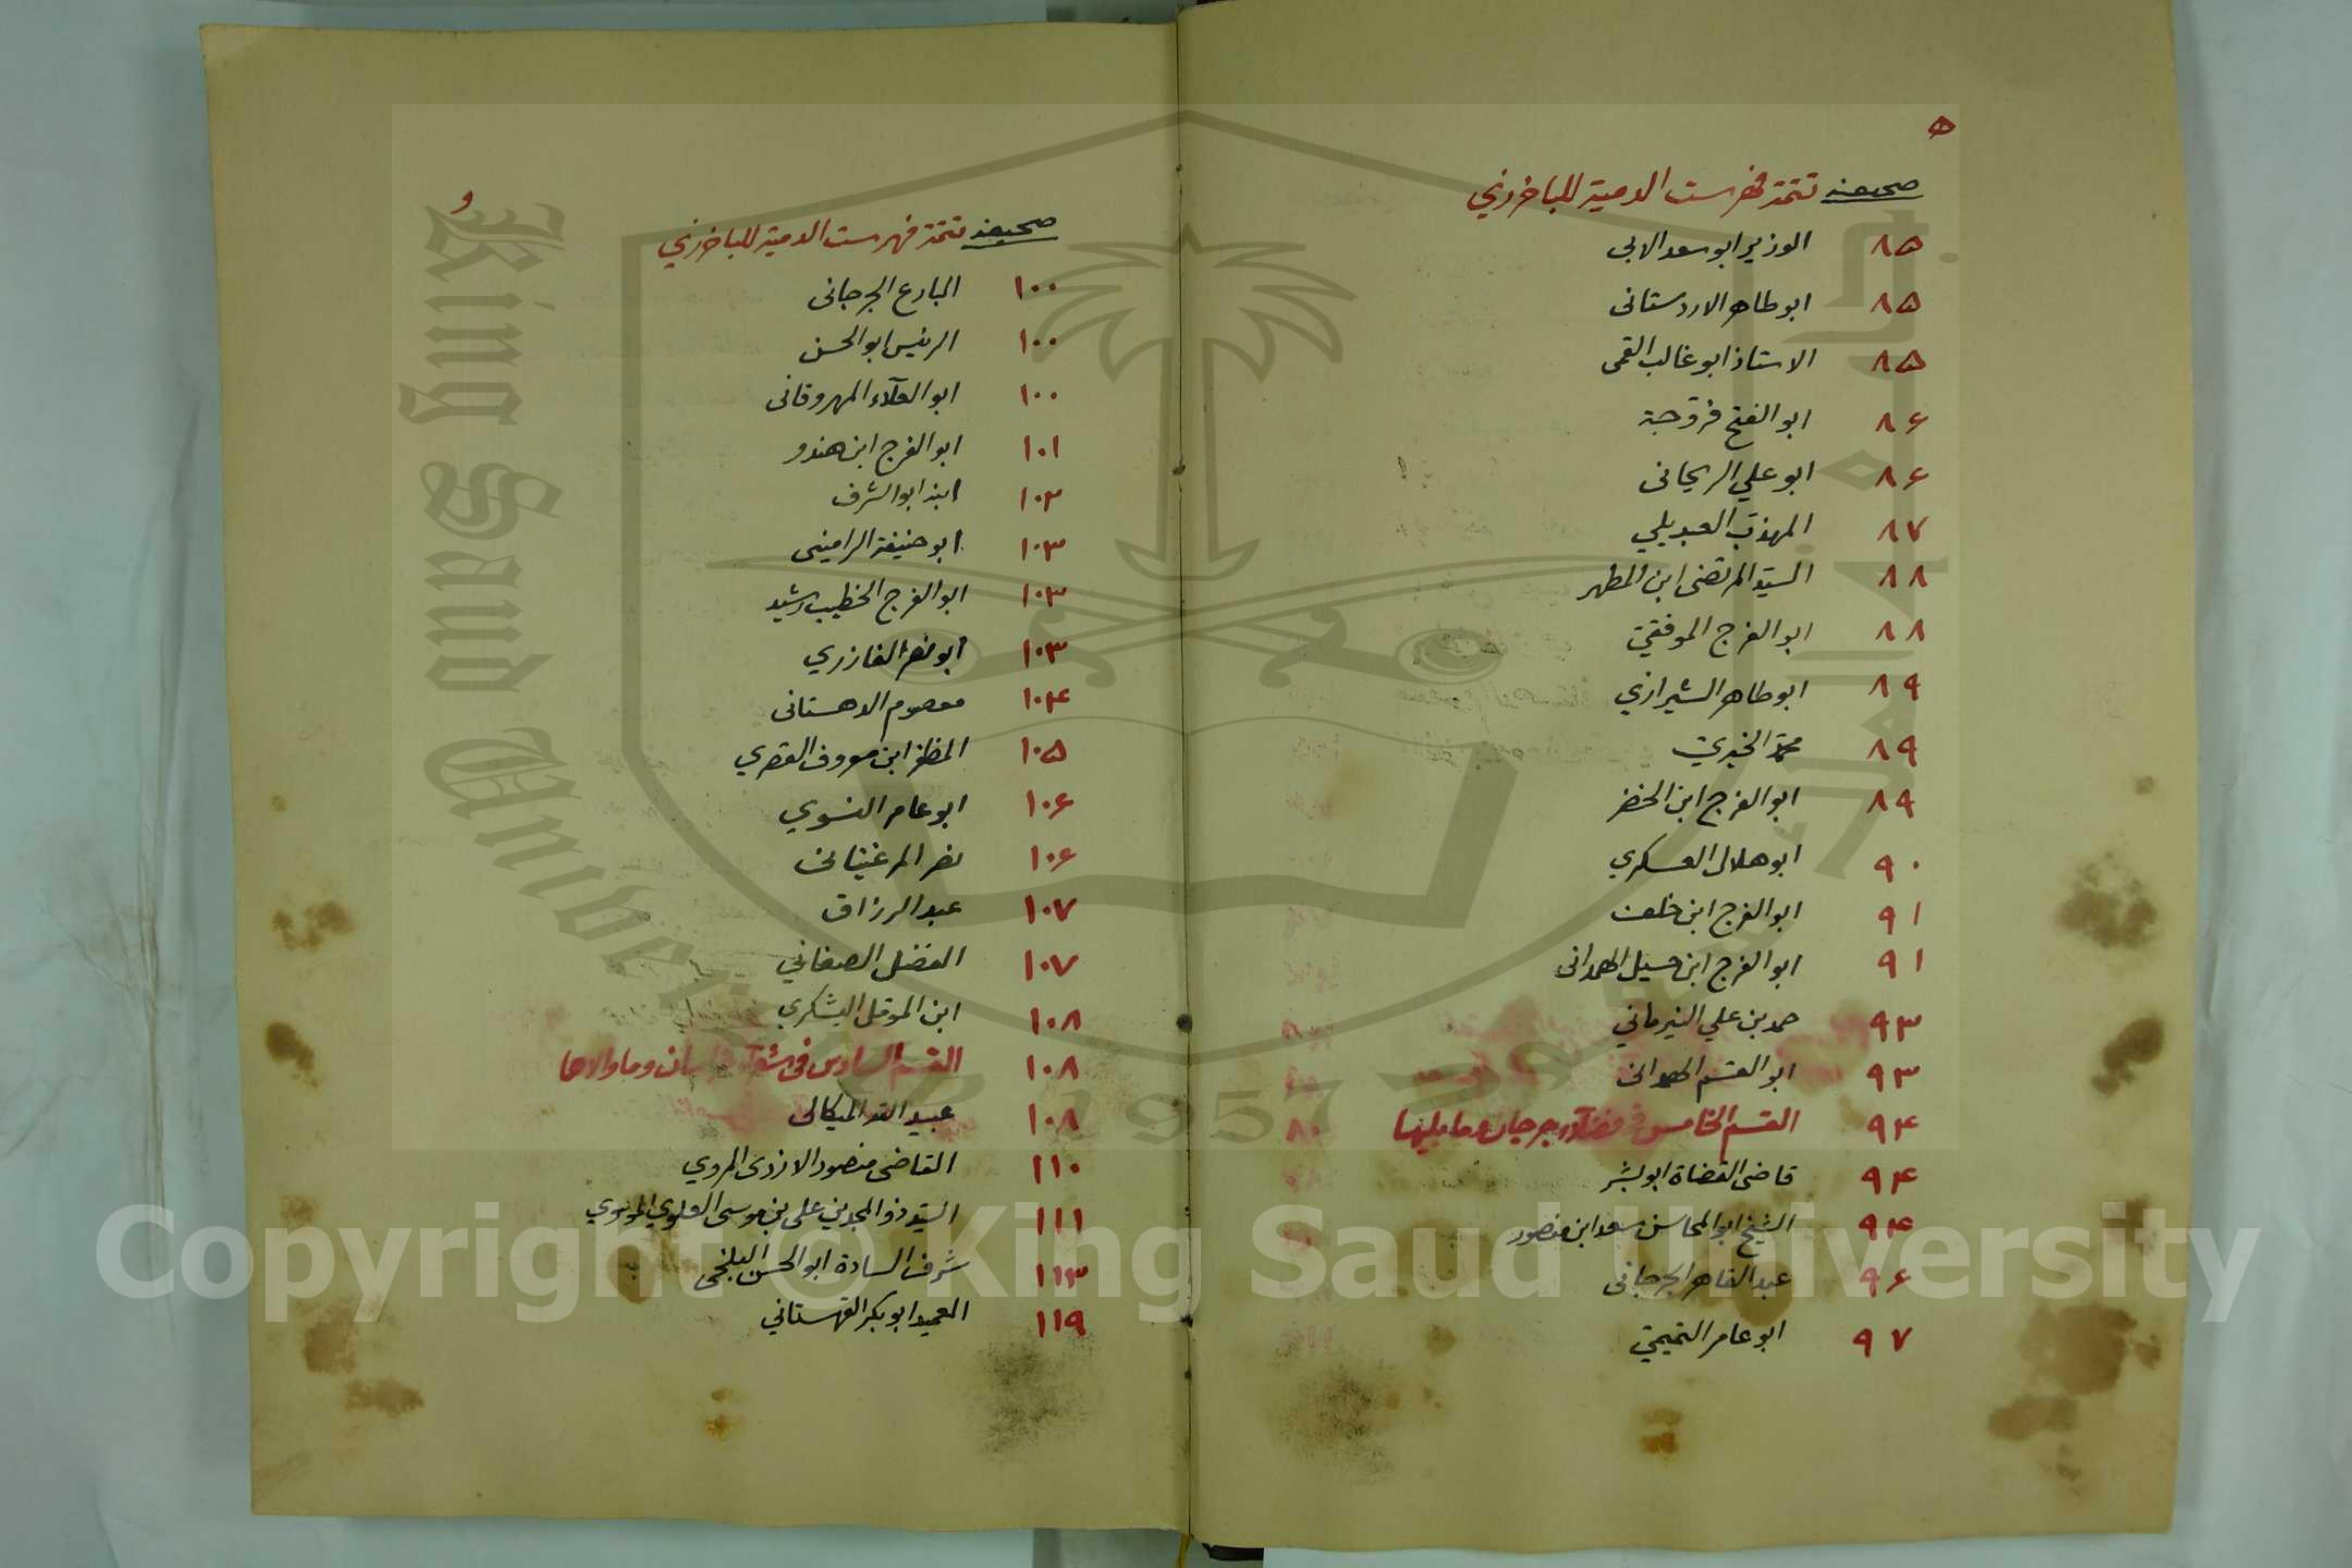 ه
صحيفه تتمة فهرست الدمية للباخرزي
٨۵ الوزير ابو سعد الابى
٨۵ ابو طاهر الاردستانى
٨۵ الاستاذ ابو غالب القمى
٨۶ ابو الفتح فروجة
٨۶ ابو علي الريحانى
٨٧ المهذب العبديلي
٨٨ السيد المرتضى ابن المطهر
٨٨ ابو الفرج الموفقي
٨٩ ابو طاهر الشيرازي
٨٩ محمد الخبري
٨٩ ابو الفرج ابن الخضر
٩٠ ابو هلال العسكري
٩١ ابو الفرج ابن خلف
٩١ ابو الفرج ابن حسيل الهمدانى
٩٣ حمد بن علي النيرماني
٩٣ ابو القسم الهمدانى
٩۴ القسم الخامس فى فضلآء جرجان وما يليها
٩۴ قاضى القضاة ابو بشر
٩۴ الشيخ ابو المحاسن سعد ابن منصور
٩۶ عبد القاهر الجرجانى
٩٧ ابو عامر التميمي
و
صحيفه تتمة فهرست الدمية للباخرزي
١٠٠ البارع الجرجانى
١٠٠ الرئيس ابو الحسن
١٠٠ ابو العلآء المهروقانى
١٠١ ابو الفرج ابن هندو
١٠٣ ابنه ابو الشرف
١٠٣ ابو حنيفة الرامينى
١٠٣ ابو الفرج الخطيب رشيد
١٠٣ ابو نصر الفازري
١٠۴ معصوم الدهستانى
١٠۵ المظفر ابن معروف القصري
١٠۶ ابو عامر النسوي
١٠۶ نصر المرغينانى
١٠٧ عبد الرزاق
١٠٧ الفضل الصغاني
١٠٨ ابن الموقل اليشكري
١٠٨ القسم السادس فى شعرآء خراسان وما والاها
١٠٨ عبيد الله الميكالى
١١٠ القاضى منصور الازدى الهروي
١١١ السيد ذو المجدين على بن موسى العلوي الموسوي
١١٣ شرف السادة ابو الحسن البلخى
١١٩ العميد ابو بكر القهستاني
King Saud University
1957
Copyright © King Saud University